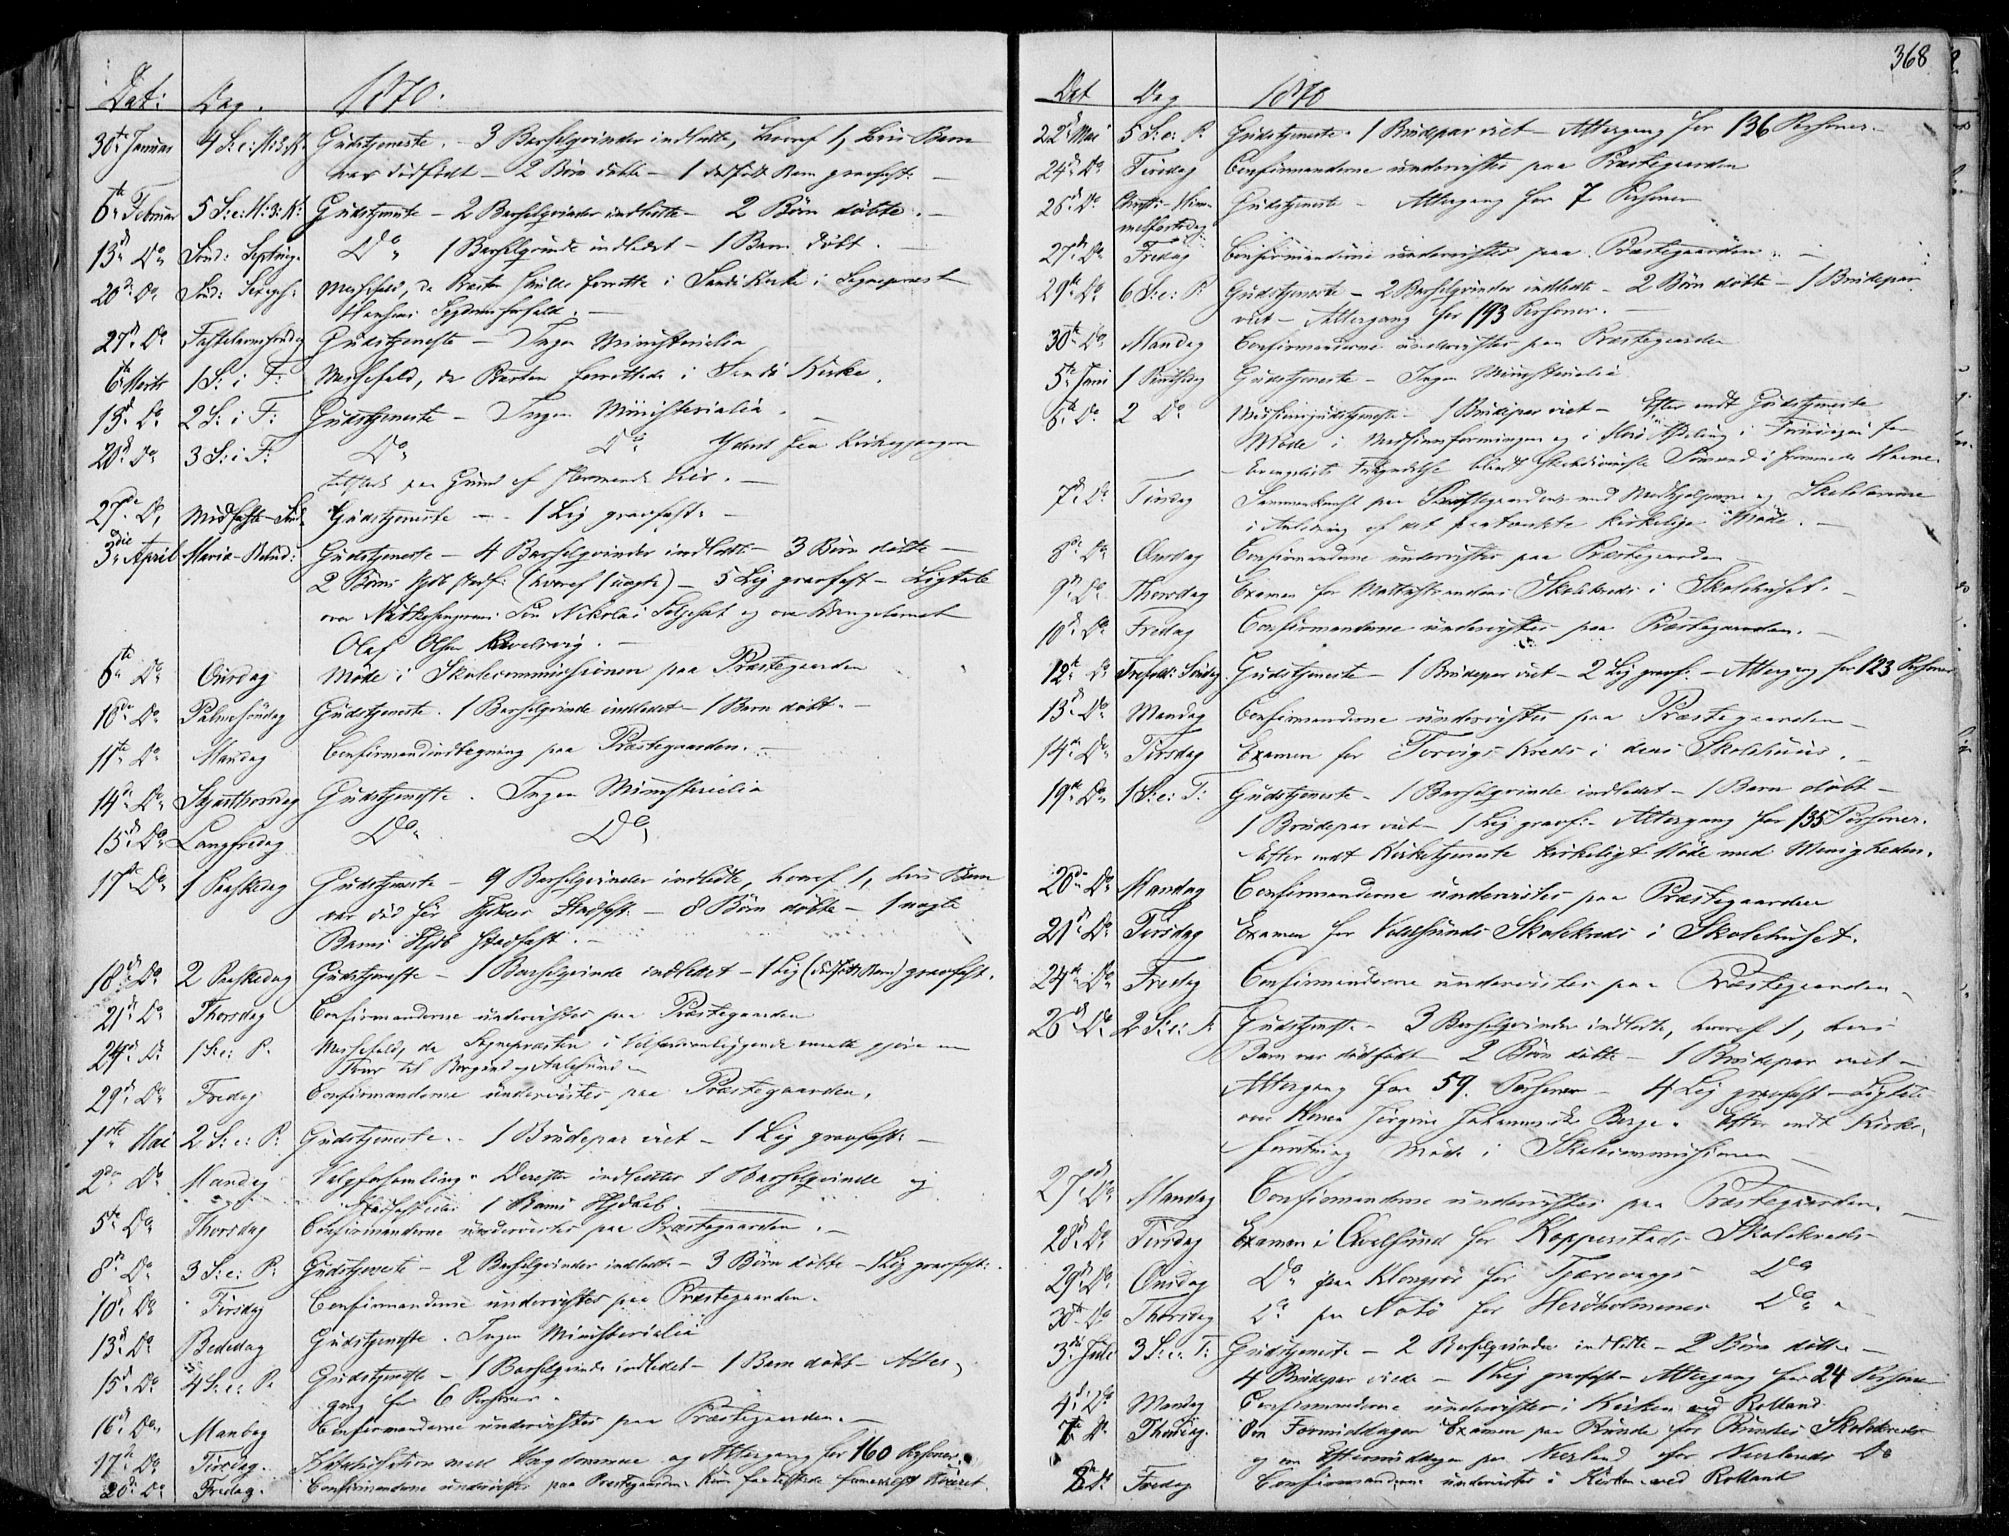 Dat: Dag. 1870.
30te Januar 4 S: e: H: 3 K: Gudstjeneste. - 3 Barselqvinder indledte, hvoraf 1, hvis Barn
var dødfødt - 2 Børn døbte - 1 dødfødt Barn gravfæst: -
6te Februar 5 S: e: H: 3: K: Gudstjeneste - 2 Barselqvinder indledte - 2 Børn døbte. -
13de Do Sønd: Septuag: Do 1 Barselqvinde indledet - 1 Barn døbt. -
20de Do Sønd: Sexages: Messefald, da Præsten skulde forrette i Sande Kirke i Sognepræst
Hansens Sygdomsforfald. -
27de Do Fastelavnssøndag Gudstjeneste - Ingen Ministerialia
6te Marts 1 S: i F: Messefald, da Præsten forrettede i Sande Kirke.
13de Do 2 S: i F: Gudstjeneste - Ingen Ministerialia. -
20de Do 3 S: i F: Do Do
paa Grund af
27de Do Midfaste Sønd: Gudstjeneste - 1 Lig gravfæst: -
3die April Mariæ Bebud: Gudstjeneste - 4 Barselqvinder indledte - 3 Børn døbte -
2 Børns Hjdb stadf: (hvoraf 1 uægte) - 5 Lig gravfæst - Ligtale
over Søn Nikolai og over
Olaf Olsen
6te Do Onsdag Møde i Skolecommissionen paa Præstegaarden
10de Do Palmesøndag Gudstjeneste. 1 Barselqvinde indledet - 1 Barn døbt. -
11te Do Mandag Confirmandindtegning paa Præstegaarden. -
14de Do Skjærthorsdag Gudstjeneste. Ingen Ministerialia
15de Do Langfredag Do Do
17de Do 1 Paaskedag Gudstjeneste - 9 Barselqvinder indledte, hvoraf 1, hvis Barn
var død før Hjdaabs Stadfæst: - 8 Børn døbte - 1 uægte
Barns Hjdb stadfæst. -
18de Do 2 Paaskedag Gudstjeneste - 1 Barselqvinde indledet - 1 Lig (dødfødt Barn) gravfæst.
21de Do Thorsdag Confirmanderne undervistes paa Præstegaarden
24de Do 1 S: e: P: Messefald, da Sognepræsten i maatte gjøre en
Tour til Borgund og Aalesund -
29de Do Fredag Confirmanderne undervistes paa Præstegaarden.
1ste Mai 2 S: e: P: Gudstjeneste. - 1 Brudepar viet - 1 Lig gravfæst: -
2den Do Mandag Valgforsamling. Derefter indlededes 1 Barselqvinde og
stadfæstedes 1 Barns Hjdaab.
5te Do Thorsdag Confirmanderne undervistes paa Præstegaarden. -
8de Do 3 S: e: P: Gudstjeneste - 2 Barselqvinder indledte - 3 Børn døbte - 1 Lig gravfæst:
10de Do Tirsdag Confirmanderne undervistes paa Præstegaarden.
13de Do Bededag Gudstjeneste. Ingen Ministerialia
15de Do 4 S: e: P: Gudstjeneste - 1 Barselqvinde indledet - 1 Barn døbt - Alter-
gang for 6 Personer.
16de Do Mandag Confirmanderne undervistes paa Præstegaarden. -
17de Do Tirsdag. Katekisation med Ungdommen og Altergang for 160 Personer.
20de Do Fredag. Confirmanderne undervistes paa Præstegaarden.
368
Dat Dag 1870
22de Mai 5 S: e: P: Gudstjeneste. 1 Brudepar viet - Altergang for 136 Personer. -
24de Do Tirsdag Confirmanderne undervistes paa Præstegaarden
26de Do Christi-Him- Gudstjeneste - Altergang for 7 Personer
melfartsdag
27de Do Fredag Confirmanderne undervistes paa Præstegaarden. -
29de Do 6 S: e: P: Gudstjeneste - 2 Barselqvinder indledte - 2 Børn døbte - 1 Brudepar
viet - Altergang for 193 Personer. -
30te Do Mandag Confirmanderne undervistes paa Præstegaarden
5te Juni 1 Pintsedag Gudstjeneste - Ingen Ministerialia
6te Do 2 Do Missionsgudstjeneste - 1 Brudepar viet - Efter endt Gudstjeneste
Møde i Missionsforeningen og i Herø Afdeling i Foreningen for
Evangeliets Forkyndelse blandt skandinaviske Sømænd i fremmede Havne.
7de Do Tirsdag Sammenkomst paa Præstegaarden med Medhjelperne og Skolelærerne
i Anledning af det paatænkte kirkelige Møde. -
8de Do Onsdag Confirmanderne undervistes paa Præstegaarden
9de Do Thorsdag Examen for Skolekreds i Skolehuset. -
10de Do Fredag Confirmanderne undervistes paa Præstegaarden. -
12te Do Trefold: Søndag Gudstjeneste - 1 Brudepar viet - 2 Lig gravf: - Altergang for 123 Personer
13de Do Mandag Confirmanderne undervistes paa Præstegaarden -
14de Do Tirsdag Examen for Torvigs Kreds i dens Skolehuus. -
19de Do 1 S: e: T: Gudstjeneste - 1 Barselqvinde indledet - 1 Barn døbt -
1 Brudepar viet - 1 Lig gravf: - Altergang for 135 Personer.
Efter endt Kirketjeneste kirkeligt Møde med Menigheden.
20de Do Mandag Confirmanderne undervistes paa Præstegaarden
21de Do Tirsdag Examen for Skolekreds i Skolehuset.
24de Do Fredag Confirmanderne undervistes paa Præstegaarden -
26de Do 2 S: e: T: Gudstjeneste - 3 Barselqvinder indledte, hvoraf 1, hvis
Barn var dødfødt - 2 Børn døbte - 1 Brudepar viet -
Altergang for 59 Personer - 4 Lig gravfæst - Ligtale
over Konen Berge. Efter endt Kirke-
forretning Møde i Skolecommissionen -
27de Do Mandag Confirmanderne undervistes paa Præstegaarden. -
28de Do Tirsdag Examen i for Kopperstads Skolekreds -
29de Do Onsdag Do paa for Tjørevaags Do
30te Do Thorsdag Do paa Notø for Herøholmenes Do
3die Juli 3 S: e: T: Gudstjeneste - 2 Barselqvinder indledte - 2 Børn døbte -
4 Brudepar viede - 1 Lig gravfæst - Altergang for 24 Personer
4de Do Mandag Confirmanderne undervistes i Kirken ved Rolland
7de Do Thorsdag. Om Formiddagen Examen paa Runde for Rundes Skolekreds
og om Eftermiddagen paa Nerland for Nerlands Do
8de Do Fredag Confirmanderne undervistes i Kirken ved Rolland